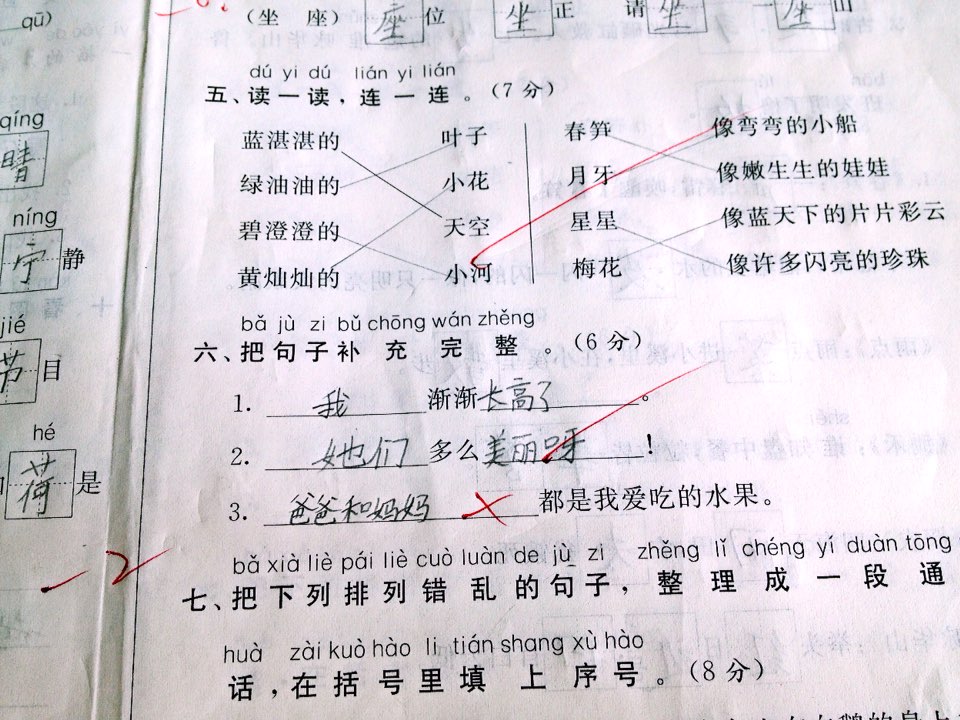 qū)
(坐 座) 座 位 坐 正 请 坐 座 山
dú yi dú lián yi lián
五、读一读,连一连。(7分)
qíng
晴
蓝湛湛的 叶子 春笋 像弯弯的小船
绿油油的 小花 月牙 像嫩生生的娃娃
níng
宁 静
碧澄澄的 天空 星星 像蓝天下的片片彩云
黄灿灿的 小河 梅花 像许多闪亮的珍珠
jié
节 目
bǎ jù zi bǔ chōng wán zhěng
六、把句子补充完整。(6分)
1. 我 渐渐长高了。
hé
荷 是
2. 她们 多么美丽呀!
3. 爸爸和妈妈 都是我爱吃的水果。
-2
bǎ xià liè pái liè cuò luàn de jù zi zhěng lǐ chéng yí duàn tōng
七、把下列排列错乱的句子,整理成一段通
huà zài kuò hào li tián shang xù hào
话,在括号里填上序号。(8分)